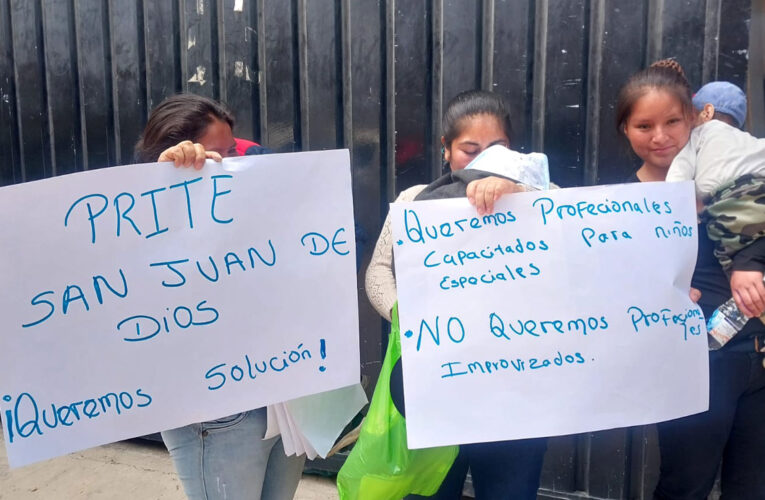 PRITE
SAN JUAN DE
DIOS
¡Queremos Solución!
• Queremos Profecionales
Capacitados Para niños
Especiales
• NO Queremos Profecionales
Improvizados.